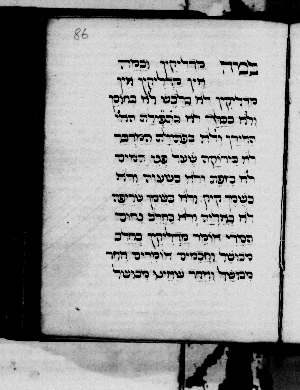 86
במה מדליקין ובמה
אין מדליקין אין
מדליקין לא בלכש ולא בחוסן
ולא בכלך ולא בפתילת האידן
ולא בפתילת המדבר
ולא בירוקה שעל פני המים
לא בזפת ולא בשעוה ולא
בשמן קיק ולא בשמן שריפה
לא באליה ולא בחלב נחום
המדי אומר מדליקין בחלב
מבושל וחכמים אומרים אחד
מבושל ואחד שאינו מבושל